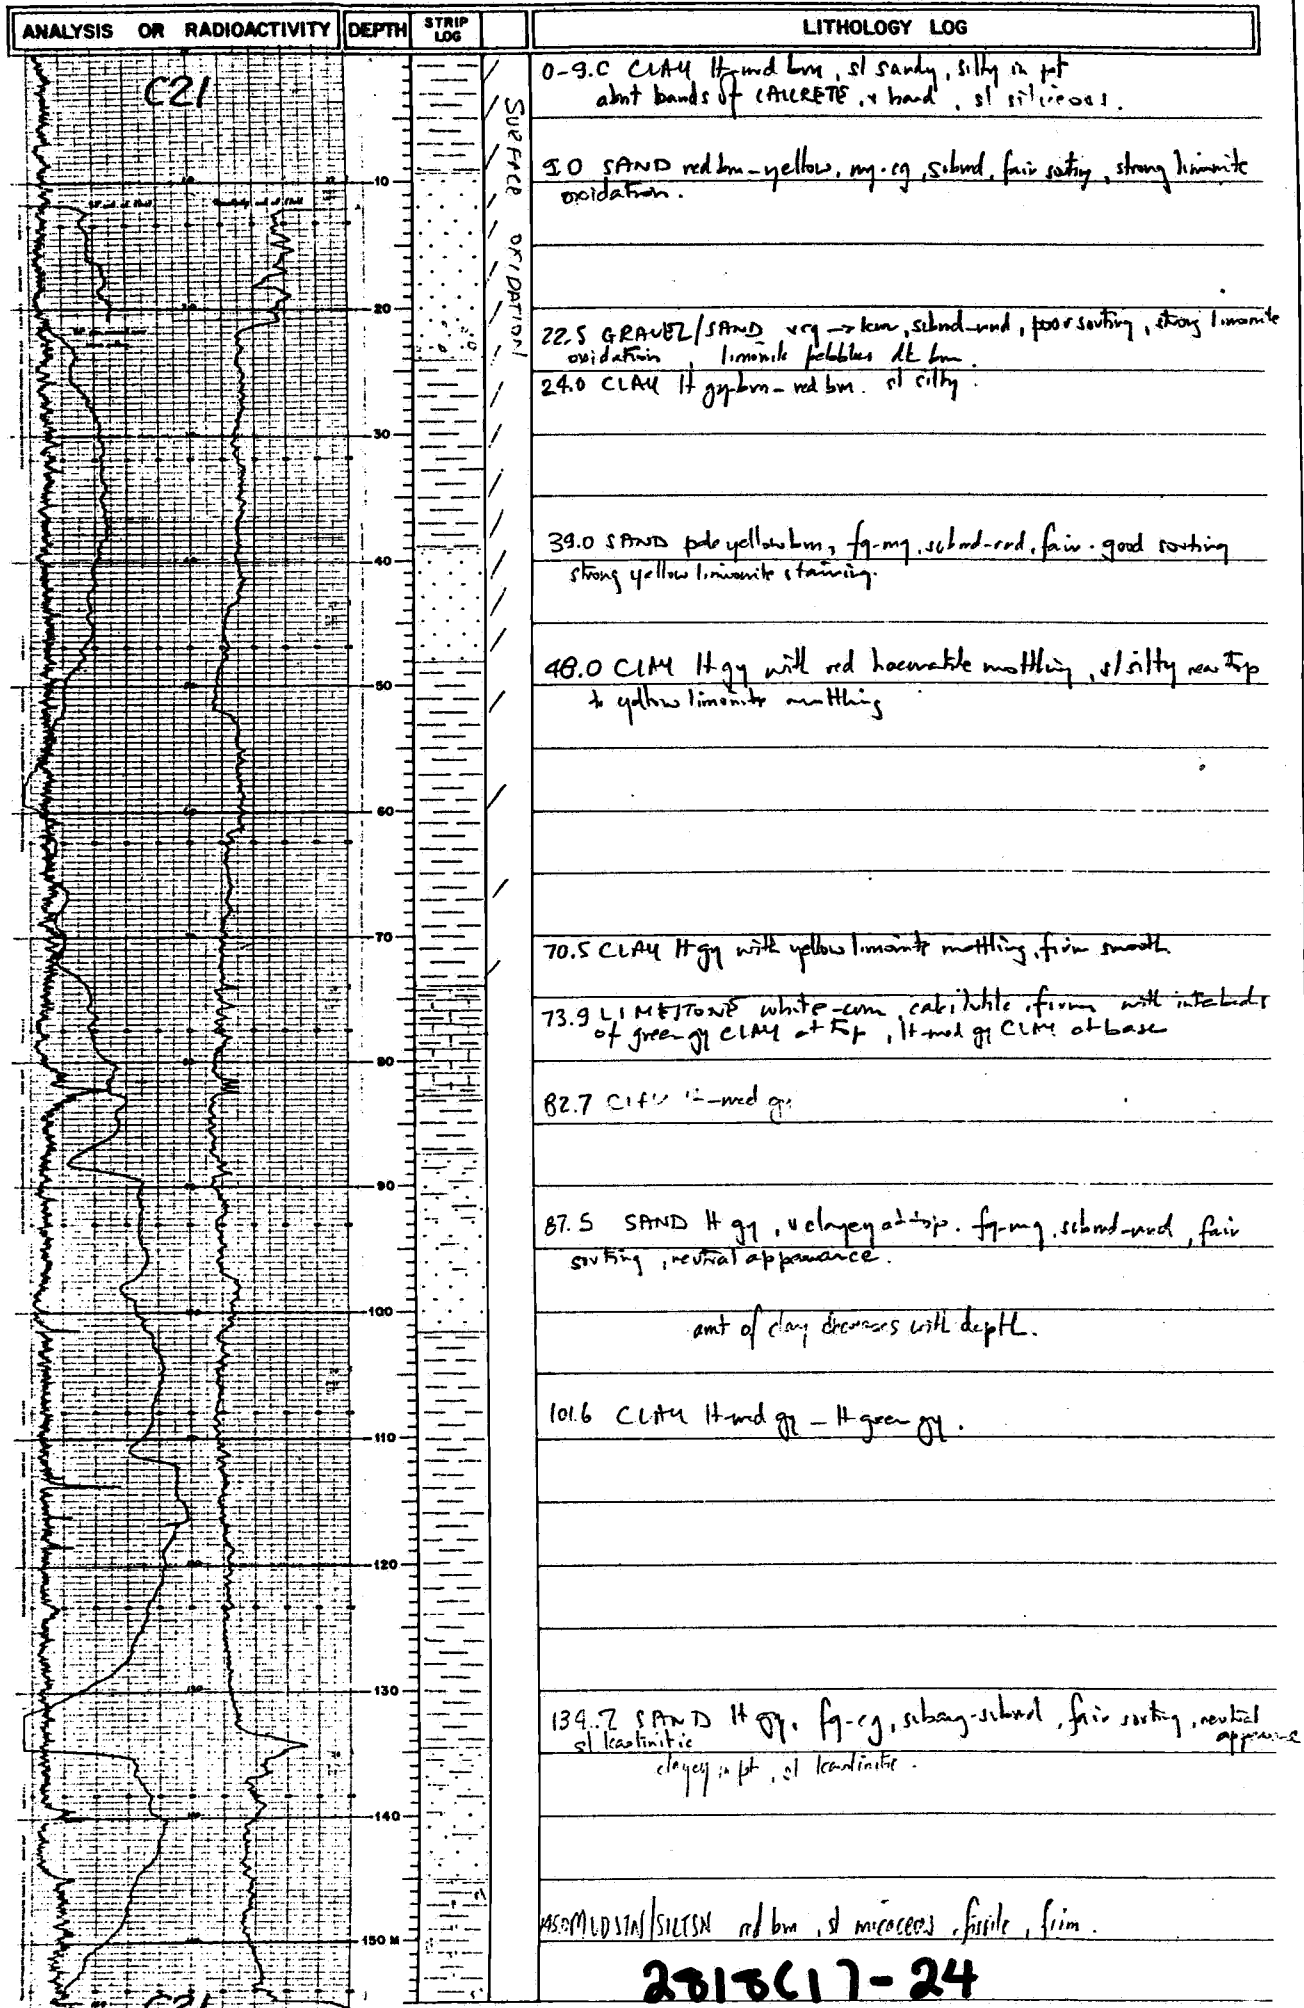 ANALYSIS OR RADIOACTIVITY
DEPTH
STRIP LOG
LITHOLOGY LOG
C21
SURFACE OXIDATION
0-9.0 CLAY lt-med brn, sl sandy, silty in pt
abnt bands of CALCRETE, v hard, sl siliceous.
9.0 SAND red brn-yellow, mg-cg, subrnd, fair sorting, strong limonite
oxidation.
22.5 GRAVEL/SAND vcg → , subrnd-rnd, poor sorting, strong limonite
oxidation, limonite pebbles dk brn
24.0 CLAY lt gy-brn - red brn. sl silty.
39.0 SAND pale yellow brn, fg-mg, subrnd-rnd, fair-good sorting
strong yellow limonite staining.
48.0 CLAY lt gy with red haematite mottling, sl silty near top
to yellow limonite mottling
70.5 CLAY lt gy with yellow limonite mottling, firm smooth
73.9 LIMESTONE white-crm, calcilutite, firm, with interbeds
of green gy CLAY at top, lt-med gy CLAY at base
82.7 CLAY lt-med gy
87.5 SAND lt gy, v clayey at top. fg-mg, subrnd-rnd, fair
sorting, neutral appearance.
amt of clay decreases with depth.
101.6 CLAY lt-med gy - lt green gy.
134.2 SAND lt gy, fg-cg, subang-subrnd, fair sorting, neutral appearance
sl kaolinitic
clayey in pt, sl kaolinitic.
145.0 MUDSTN/SILTSN red brn, sl micaceous, fissile, firm.
10
20
30
40
50
60
70
80
90
100
110
120
130
140
150 M
2818C17-24
C21